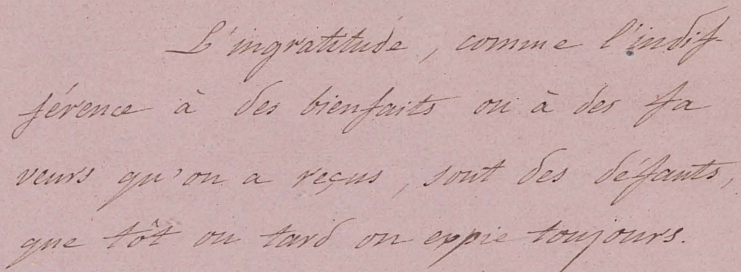 L'ingratitude, comme l'indif
férence à des bienfaits ou à des fa
veurs qu'on a reçus, sont des défauts,
que tôt ou tard on expie toujours.